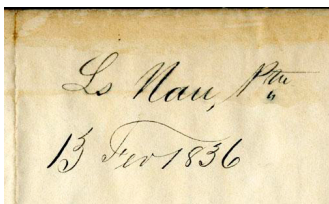 Ls Nau, Ptre
13 Fev 1836